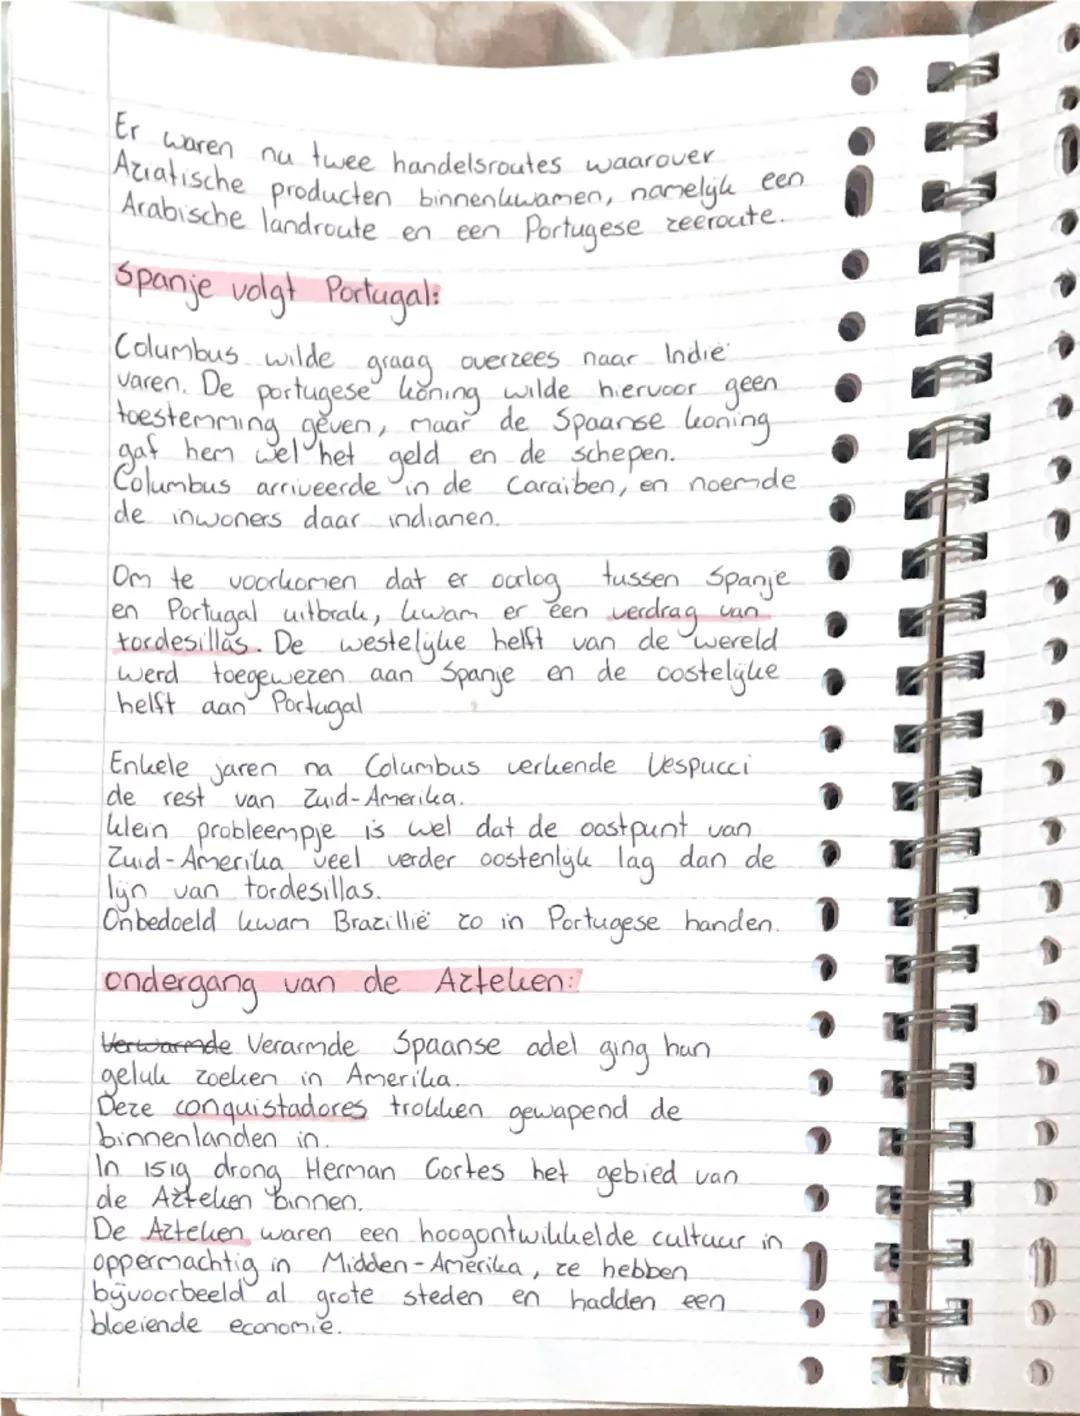 Er waren nu twee handelsroutes waarover
Aziatische producten binnenkwamen, namelijk een
Arabische landroute en een Portugese zeeroute.
Spanje volgt Portugal:
Columbus wilde graag overzees naar Indië
varen. De portugese koning wilde hiervoor geen
toestemming geven, maar de Spaanse koning
gaf hem wel het geld en de schepen.
Columbus arriveerde in de Caraiben, en noemde
de inwoners daar indianen.
Om te voorkomen dat er oorlog tussen Spanje
en Portugal uitbrak, kwam er een verdrag van
tordesillas. De westelijke helft van de wereld
werd toegewezen aan Spanje en de oostelijke
helft aan Portugal
Enkele jaren na Columbus verkende Vespucci
de rest van Zuid-Amerika.
klein probleempje is wel dat de oostpunt van
Zuid-Amerika veel verder oostenlijk lag dan de
lijn van tordesillas.
Onbedoeld kwam Brazillië zo in Portugese handen.
ondergang van de Azteken:
Verwarmde Verarmde Spaanse adel ging hun
geluk zoeken in Amerika.
Deze conquistadores trokken gewapend de
binnenlanden in.
In 1519 drong Herman Cortes het gebied van
de Azteken binnen.
De Azteken waren een hoogontwikkelde cultuur in
oppermachtig in Midden-Amerika, ze hebben
bijvoorbeeld al grote steden en hadden een
bloeiende economie.